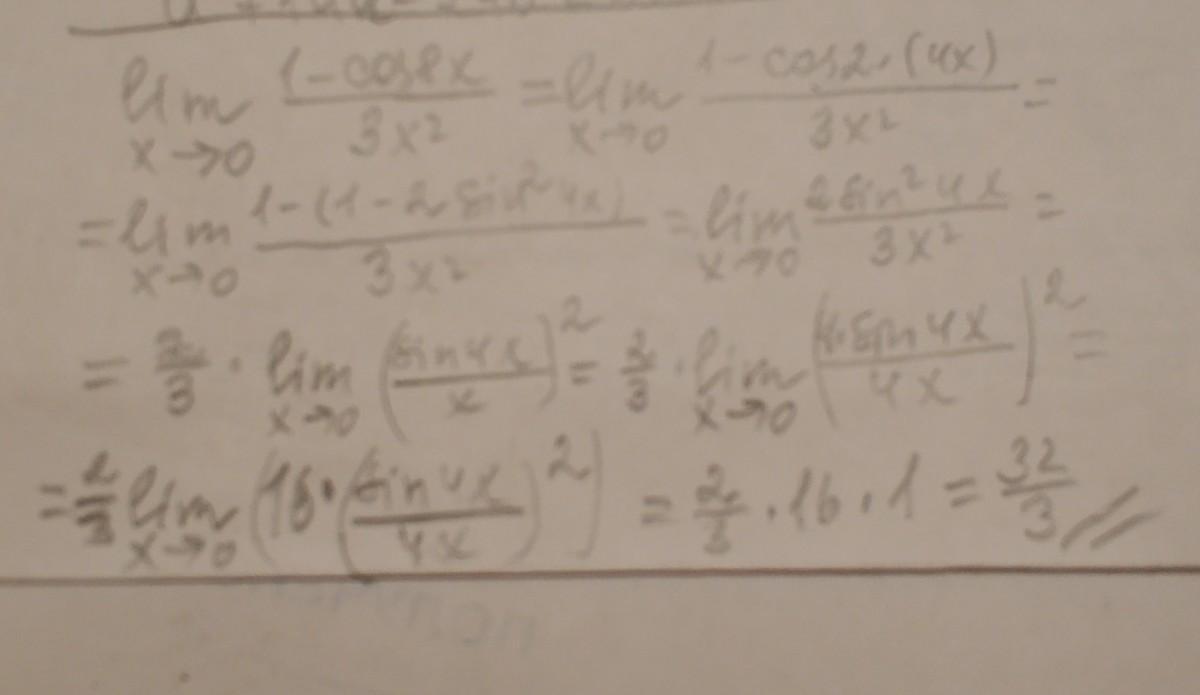 lim x→0 (1-cos8x)/(3x²) = lim x→0 (1-cos2·(4x))/(3x²) =
= lim x→0 (1-(1-2sin²4x))/(3x²) = lim x→0 (2sin²4x)/(3x²) =
= 2/3 · lim x→0 (sin4x/x)² = 2/3 · lim x→0 (4·sin4x/4x)² =
= 2/3 lim x→0 (16·(sin4x/4x)²) = 2/3 · 16 · 1 = 32/3 //